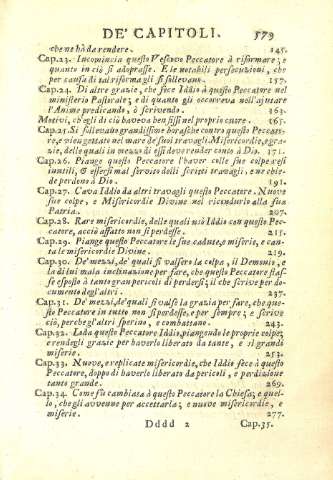 DE' CAPITOLI. 579
che ne hà da rendere. 145.
Cap.23. Incomincia questo Vescovo Peccatore à riformare; e
quanto in ciò si adoprasse. E le notabili persecuzioni, che
per causa di tal riforma gli si sollevano. 157.
Cap.24. Di altre grazie, che fece Iddio à questo Peccatore nel
ministerio Pastorale; e di quanto gli occorreva nell'ajutare
l'Anime predicando, ò scrivendo. 163.
Motivi, ch'egli di ciò haveva ben fissi nel proprio cuore. 165.
Cap.25. Si sollevano grandissime borasche contro questo Peccato-
re, e vien gettato nel mare de' suoi travagli. Misericordie, e gra-
zie, delle quali in mezzo di essi deve render conto à Dio. 171.
Cap.26. Piange questo Peccatore l'haver colle sue colpe resi
inutili, & essersi mal servito delli scritti travagli, e ne chie-
de perdono à Dio. 191.
Cap.27. Cava Iddio da altri travagli questo Peccatore. Nuove
sue colpe, e Misericordie Divine nel ricondurlo alla sua
Patria. 207.
Cap.28. Rare misericordie, delle quali usò Iddio con questo Pec-
catore, acciò affatto non si perdesse. 215.
Cap.29. Piange questo Peccatore le sue cadute, e miserie, e can-
ta le misericordie Divine. 219.
Cap.30. De' mezzi, de' quali si valsero la colpa, il Demonio, e
la di lui mala inclinazione per fare, che questo Peccatore stas-
se esposto à tanti gran pericoli di perdersi; il che scrive per do-
cumento degl'altri. 237.
Cap.31. De' mezzi, de' quali si valse la grazia per fare, che que-
sto Peccatore in tutto non si perdesse, e per sempre; e scrive
ciò, perche gl'altri sperino, e combattano. 243.
Cap.32. Loda questo Peccatore Iddio, piangendo le proprie colpe;
e rendegli grazie per haverlo liberato da tante, e sì grandi
miserie. 253.
Cap.33. Nuove, e replicate misericordie, che Iddio fece à questo
Peccatore, doppo di haverlo liberato da pericoli, e perdizione
tanto grande. 269.
Cap.34. Come fù cambiasa à questo Peccatore la Chiesa; e quel-
lo, che gli avvenne per accettarla; e nuove misericordie, e
miserie. 277.
Dddd 2 Cap.35.